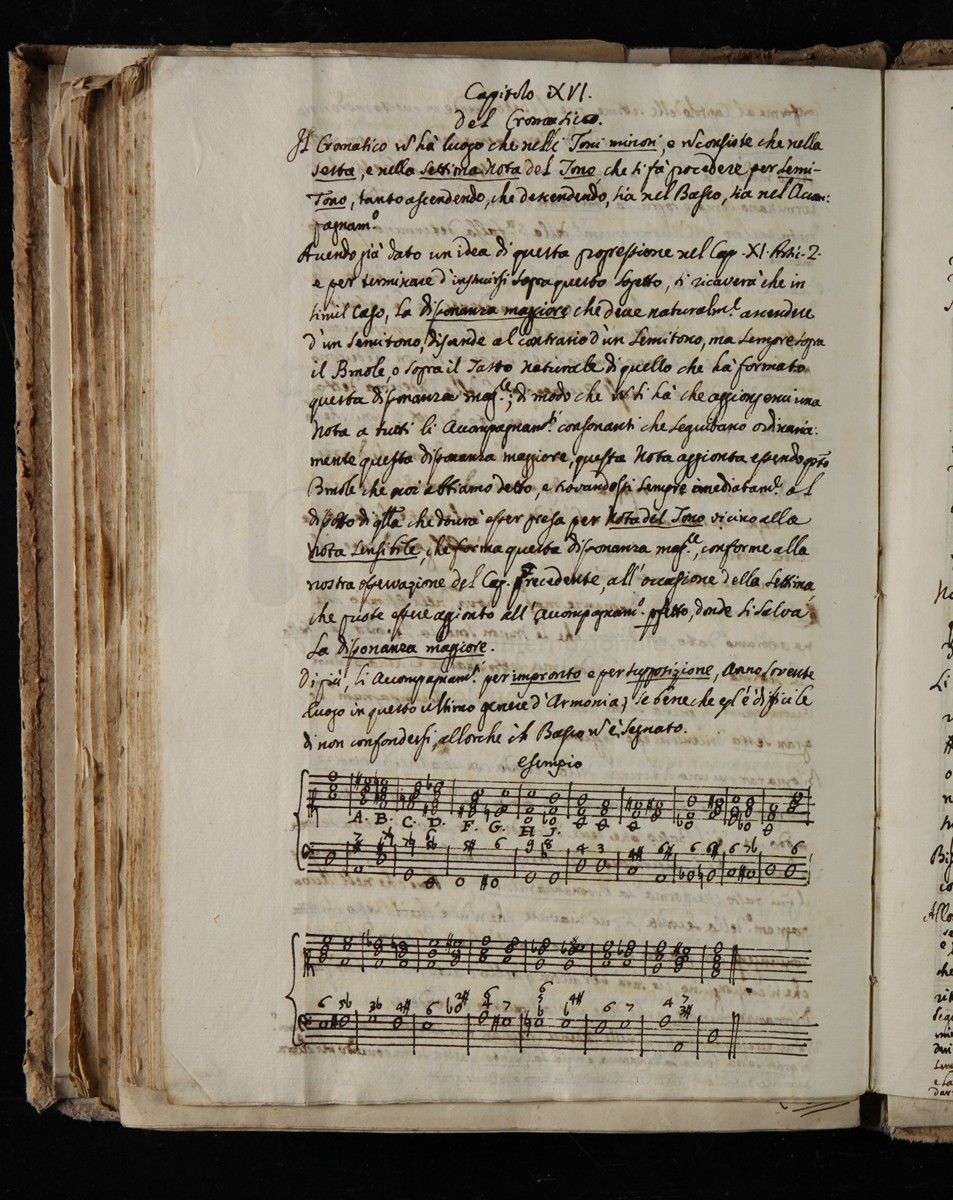 Capitolo XVI.
Del Cromatico.
Il Cromatico ñ hà luogo che nelli Toni minori, e ñ consiste che nella
sesta, e nella settima Nota del Tono che si fà procedere per Semi-
Tono, tanto ascendendo, che descendendo, sia nel Basso, sia nel Accom:
pagnam.º
Auendo già dato un idea di questa progressione nel Cap. XI. Arti. 2.
e per terminare d'instruirsi sopra questo sogetto, si ricaverà che in
simil caso, La disonanza maggiore che deve naturalm.e ascendere
d'un semitono, discende al contrario d'un semitono, ma sempre sopra
il Bmole, o sopra il Tasto naturale di quello che hà formato
questa disonanza mag.re; di modo che ñ si hà che aggiongervi una
Nota a tutti li Accompagnam.ti consonanti che seguitano ordinaria:
mente questa disonanza maggiore, questa Nota aggionta essendo
Bmole che noi abbiamo detto, e trovandosi sempre imediatam.e al
disotto di qlla che dourà esser presa per Nota del Tono vicino alla
Nota sensibile, che forma questa disonanza mag.re, conforme alla
nostra osservazione del Cap. Precedente, all'occassione della settima
che puote essere aggionto all'Accompagnam.º pfetto, donde si salva
La disonanza maggiore.
Di più, li Accompagnam.ti per impronto e per supposizione, Anno sovente
luogo in questo ultimo genere d'Armonia; se bene che egl'è difficile
di non confondersi, allorche il Basso ñ è segnato.
Esempio
A. B. C. D. F. G. H J.
7 7 7♮ 6 5♭ 5♯ 6 9 8 4 3 4♯ 6♯ 6 6♯ 6 7♭ 6
6 5♭ 3♭ 4♯ 6 3♯ 6 4 7 6 5 4♯ 6 7 4 7 3♯